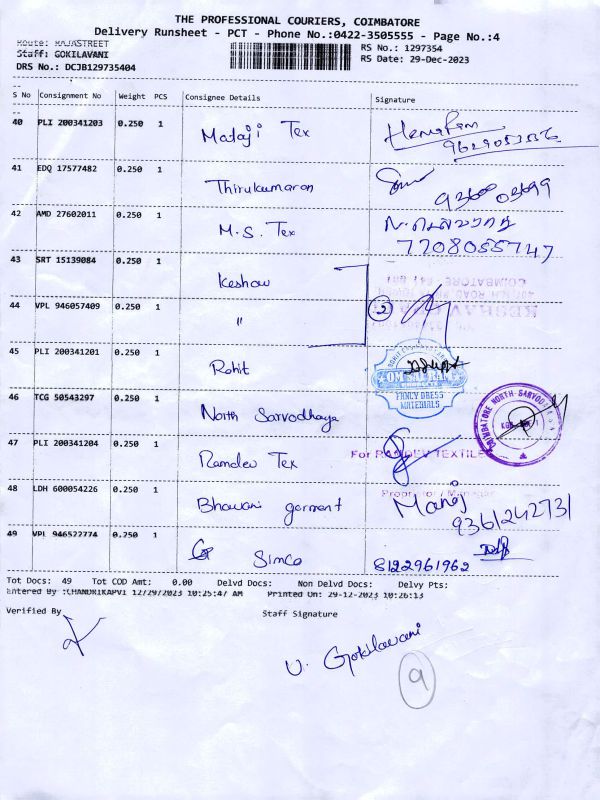 THE PROFESSIONAL COURIERS, COIMBATORE
Delivery Runsheet - PCT - Phone No.:0422-3505555 - Page No.:4
Route: RAJASTREET
RS No.: 1297354
Staff: GOKILAVANI
RS Date: 29-Dec-2023
DRS No.: DCJB129735404
S No Consignment No Weight PCS Consignee Details Signature
40 PLI 200341203 0.250 1 Mataji Tex
41 EDQ 17577482 0.250 1 Thirukumaran
42 AMD 27602011 0.250 1 M.S. Tex
7708055747
43 SRT 15139084 0.250 1 Keshav
44 VPL 946057409 0.250 1 " 2
45 PLI 200341201 0.250 1 Rohit
OM SAI RAM
FANCY DRESS
MATERIALS
46 TCG 50543297 0.250 1 North Sarvodhaya
COIMBATORE NORTH SARVODAYA
47 PLI 200341204 0.250 1 Ramdev Tex
For RAMDEV TEXTILE
Proprietor / Manager
48 LDH 600054226 0.250 1 Bhavani garment Manoj
9361242731
49 VPL 946522774 0.250 1 Simco 8122961962
Tot Docs: 49 Tot COD Amt: 0.00 Delvd Docs: Non Delvd Docs: Delvy Pts:
Entered By :CHANDRIKAPVI 12/29/2023 10:25:47 AM Printed On: 29-12-2023 10:26:13
Verified By Staff Signature
U. Gokilavani
9